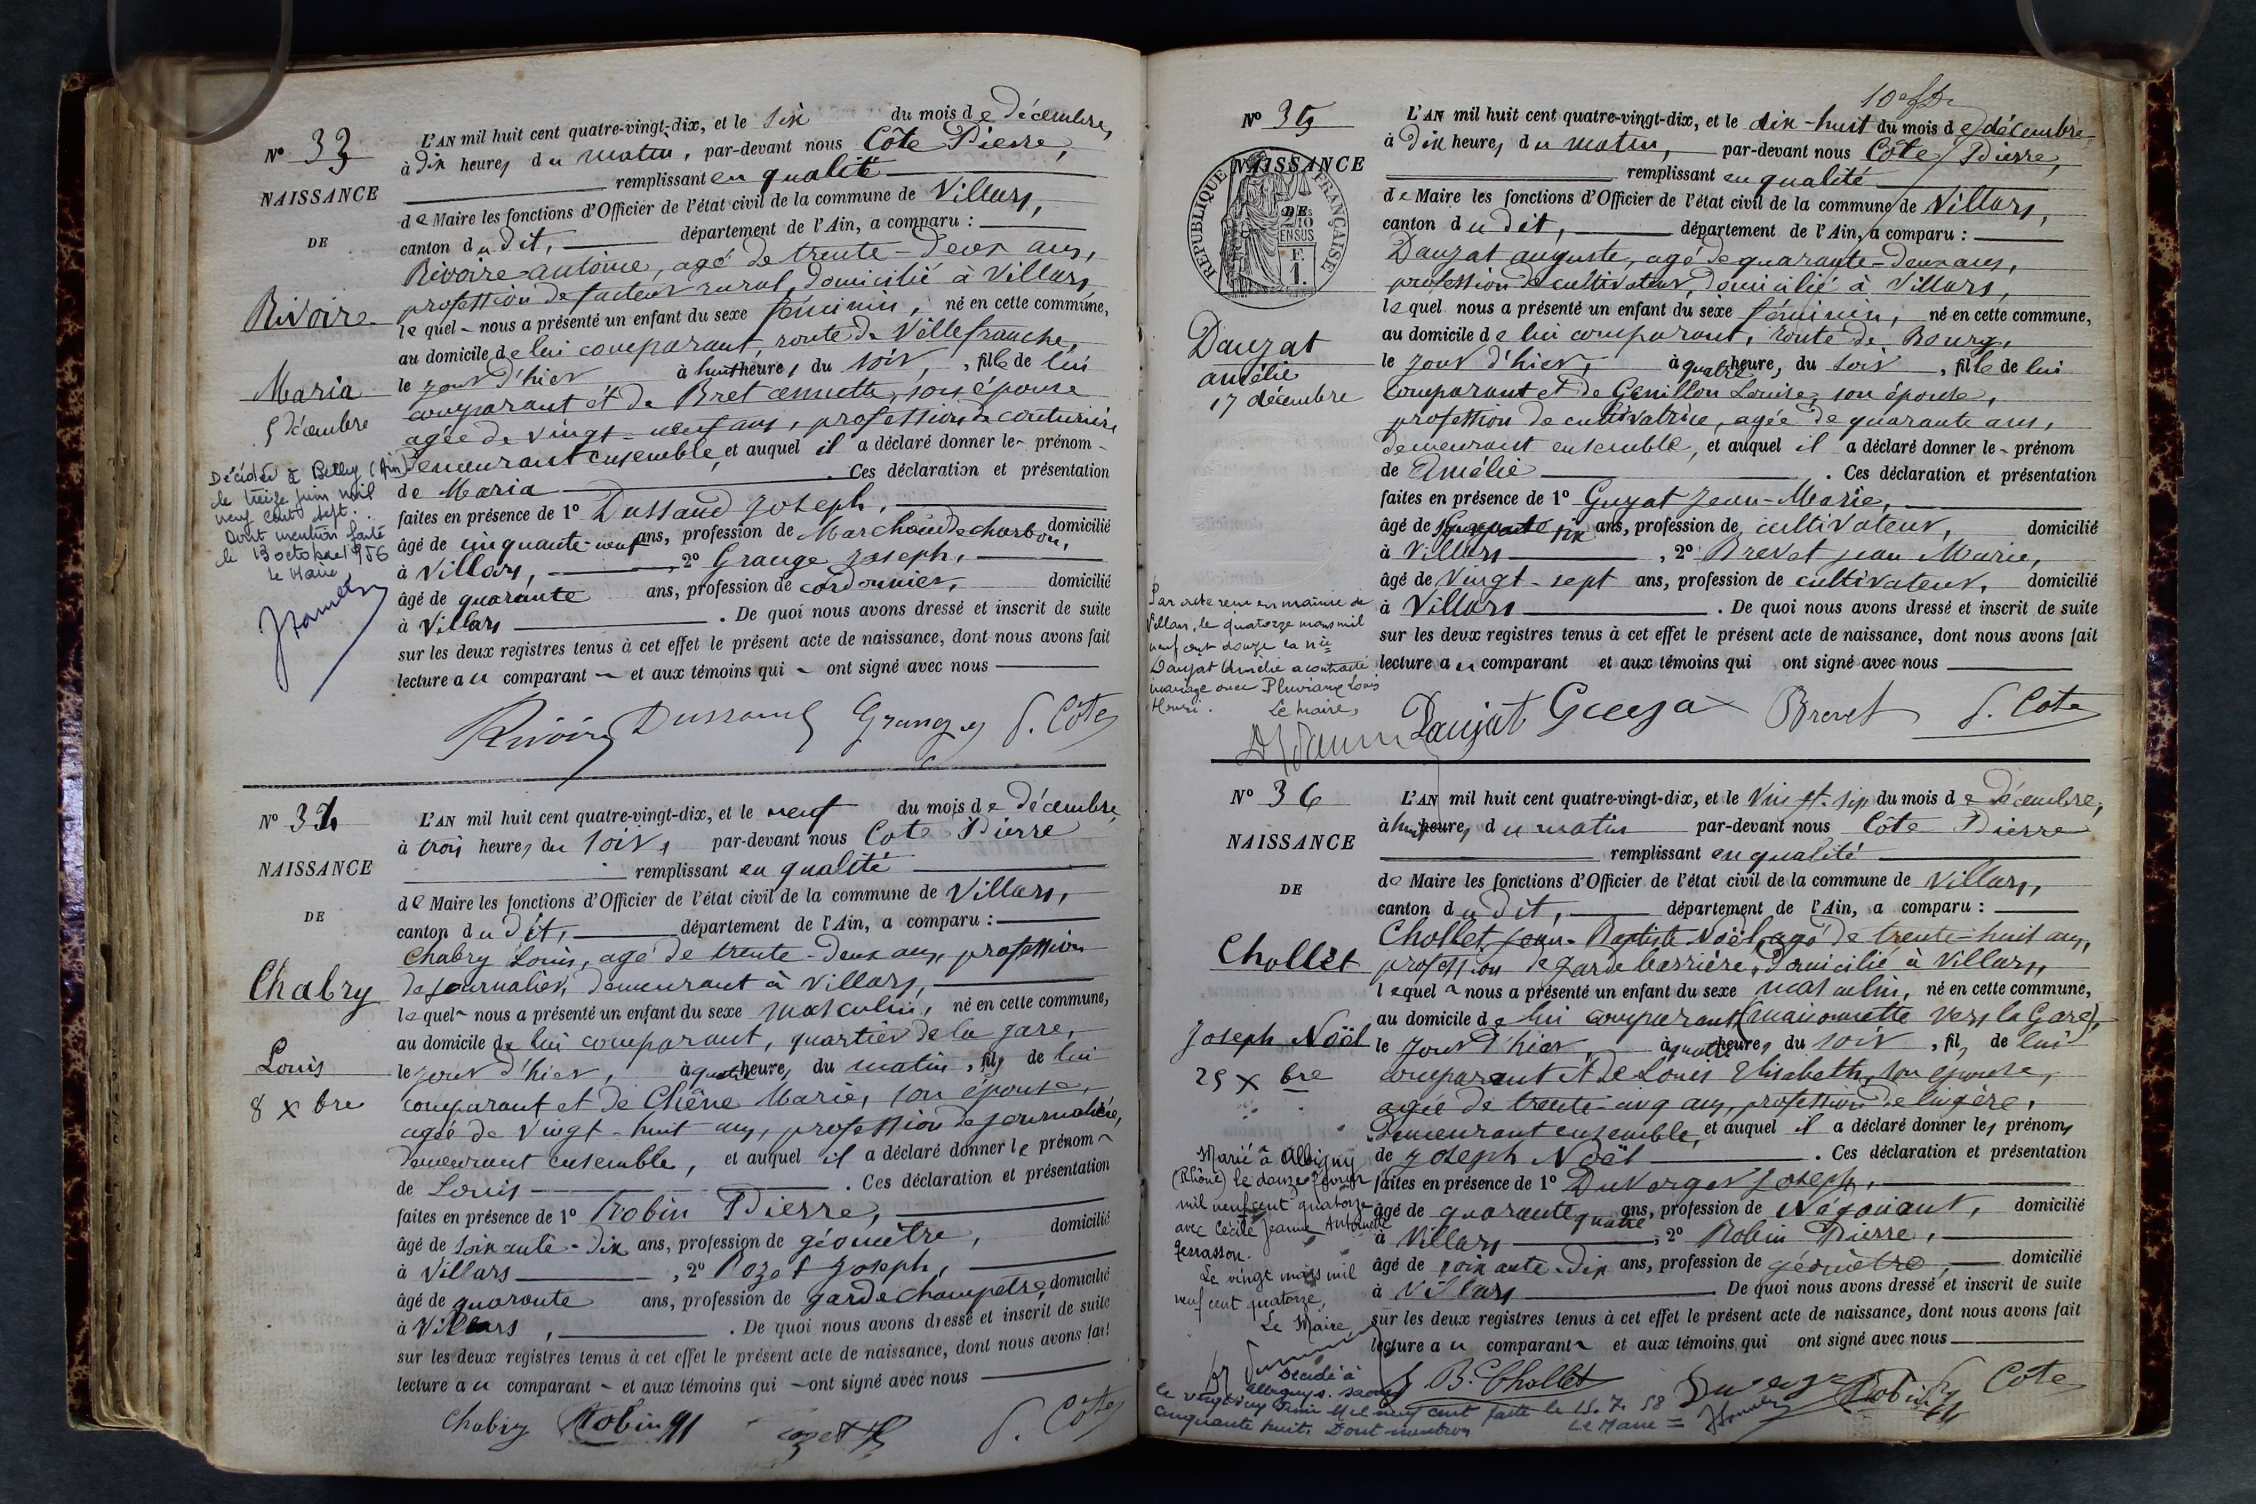 N° 33
NAISSANCE
DE
Rivoire
Maria
5 décembre
Décédée à Belley (Ain)
le treize juin mil
neuf cent sept.
Dont mention faite
le 13 octobre 1956
Le Maire
L'AN mil huit cent quatre-vingt-dix, et le six du mois de décembre,
à dix heures du matin, par-devant nous Côte Pierre,
remplissant en qualité
de Maire les fonctions d'Officier de l'état civil de la commune de Villars,
canton dudit, département de l'Ain, a comparu :
Rivoire antoine, agé de trente-deux ans,
profession de facteur rural, domicilié à Villars,
lequel nous a présenté un enfant du sexe féminin, né en cette commune,
au domicile de lui comparant, route de Villefranche,
le jour d'hier à huit heures du soir, fille de lui
comparant et de Bret annette, son épouse
agée de vingt-neuf ans, profession de couturière
demeurant ensemble, et auquel il a déclaré donner le prénom
de Maria . Ces déclaration et présentation
faites en présence de 1° Dussaud Joseph,
âgé de cinquante-neuf ans, profession de Marchand de charbon, domicilié
à Villars, , 2° Grange Joseph,
âgé de quarante ans, profession de cordonnier, domicilié
à Villars . De quoi nous avons dressé et inscrit de suite
sur les deux registres tenus à cet effet le présent acte de naissance, dont nous avons fait
lecture au comparant et aux témoins qui ont signé avec nous
Rivoire Dussaud Grange J. P. Côte
N° 34
NAISSANCE
DE
Chabry
Louis
8 xbre
L'AN mil huit cent quatre-vingt-dix, et le neuf du mois de décembre
à trois heures du soir, par-devant nous Cote Pierre
remplissant en qualité
de Maire les fonctions d'Officier de l'état civil de la commune de Villars,
canton dudit, département de l'Ain, a comparu :
Chabry Louis, agé de trente-deux ans, profession
de journalier, demeurant à Villars,
lequel nous a présenté un enfant du sexe masculin, né en cette commune,
au domicile de lui comparant, quartier de la gare,
le jour d'hier, à quatre heures du matin, fils de lui
comparant et de Chêne Marie, son épouse,
agée de vingt-huit ans, profession de journalière,
demeurant ensemble, et auquel il a déclaré donner le prénom
de Louis . Ces déclaration et présentation
faites en présence de 1° Robin Pierre,
âgé de soixante-dix ans, profession de géomètre, domicilié
à Villars , 2° Pozet Joseph,
âgé de quarante ans, profession de garde champêtre, domicilié
à Villars, . De quoi nous avons dressé et inscrit de suite
sur les deux registres tenus à cet effet le présent acte de naissance, dont nous avons fait
lecture au comparant et aux témoins qui ont signé avec nous
Chabry Robin P. Côte
N° 35
NAISSANCE
DE
RÉPUBLIQUE FRANÇAISE
2/10 EN SUS
F. 1.
Dauzat
amélie
17 décembre
Par acte reçu en mairie de
Villars, le quatorze mars mil
neuf cent douze la née
Dauzat Amélie a contracté
mariage avec Pluviaux Louis
Henri.
Le Maire,
L'AN mil huit cent quatre-vingt-dix, et le dix-huit du mois de décembre,
à dix heures du matin, par-devant nous Côte Pierre,
remplissant en qualité
de Maire les fonctions d'Officier de l'état civil de la commune de Villars,
canton dudit, département de l'Ain, a comparu :
Dauzat auguste, agé de quarante-deux ans,
profession de cultivateur, domicilié à Villars,
lequel nous a présenté un enfant du sexe féminin, né en cette commune,
au domicile de lui comparant, route de Bourg,
le jour d'hier, à quatre heures, du soir, fille de lui
comparant et de Genillon Louise, son épouse,
profession de cultivatrice, agée de quarante ans,
demeurant ensemble, et auquel il a déclaré donner le prénom
de Amélie . Ces déclaration et présentation
faites en présence de 1° Guyat Jean-Marie,
âgé de six ans, profession de cultivateur, domicilié
à Villars , 2° Brevet Jean Marie,
âgé de vingt-sept ans, profession de cultivateur, domicilié
à Villars . De quoi nous avons dressé et inscrit de suite
sur les deux registres tenus à cet effet le présent acte de naissance, dont nous avons fait
lecture au comparant et aux témoins qui ont signé avec nous
Dauzat Guyat Brevet P. Cote
N° 36
NAISSANCE
DE
Chollet
Joseph Noël
25 xbre
Marié à Albigny
(Rhône) le douze février
mil neuf cent quatorze
avec Cécile Jeanne Antoinette
Terrasson.
Le vingt mars mil
neuf cent quatorze,
Le Maire
L'AN mil huit cent quatre-vingt-dix, et le vingt-six du mois de décembre,
à huit heures du matin par-devant nous Côte Pierre
remplissant en qualité
de Maire les fonctions d'Officier de l'état civil de la commune de Villars,
canton dudit, département de l'Ain, a comparu :
Chollet Jean-Baptiste Noël, agé de trente-huit ans,
profession de garde barrière, domicilié à Villars,
lequel nous a présenté un enfant du sexe masculin, né en cette commune,
au domicile de lui comparant (maisonnette vers la Gare),
le jour d'hier, à quatre heures du soir, fils de lui
comparant et de Elisabeth, son épouse,
agée de trente-cinq ans, profession de lingère,
demeurant ensemble, et auquel il a déclaré donner les prénoms
de Joseph Noël . Ces déclaration et présentation
faites en présence de 1° Duverger Joseph,
âgé de quarante quatre ans, profession de Négociant, domicilié
à Villars , 2° Robin Pierre,
âgé de soixante-dix ans, profession de géomètre, domicilié
à Villars . De quoi nous avons dressé et inscrit de suite
sur les deux registres tenus à cet effet le présent acte de naissance, dont nous avons fait
lecture au comparant et aux témoins qui ont signé avec nous
J B. Chollet Robin P. Cote
Décédé à
Albigny s. Saône
le vingt juin mil neuf cent
cinquante huit. Dont mention
faite le 15. 7. 58
Le Maire =